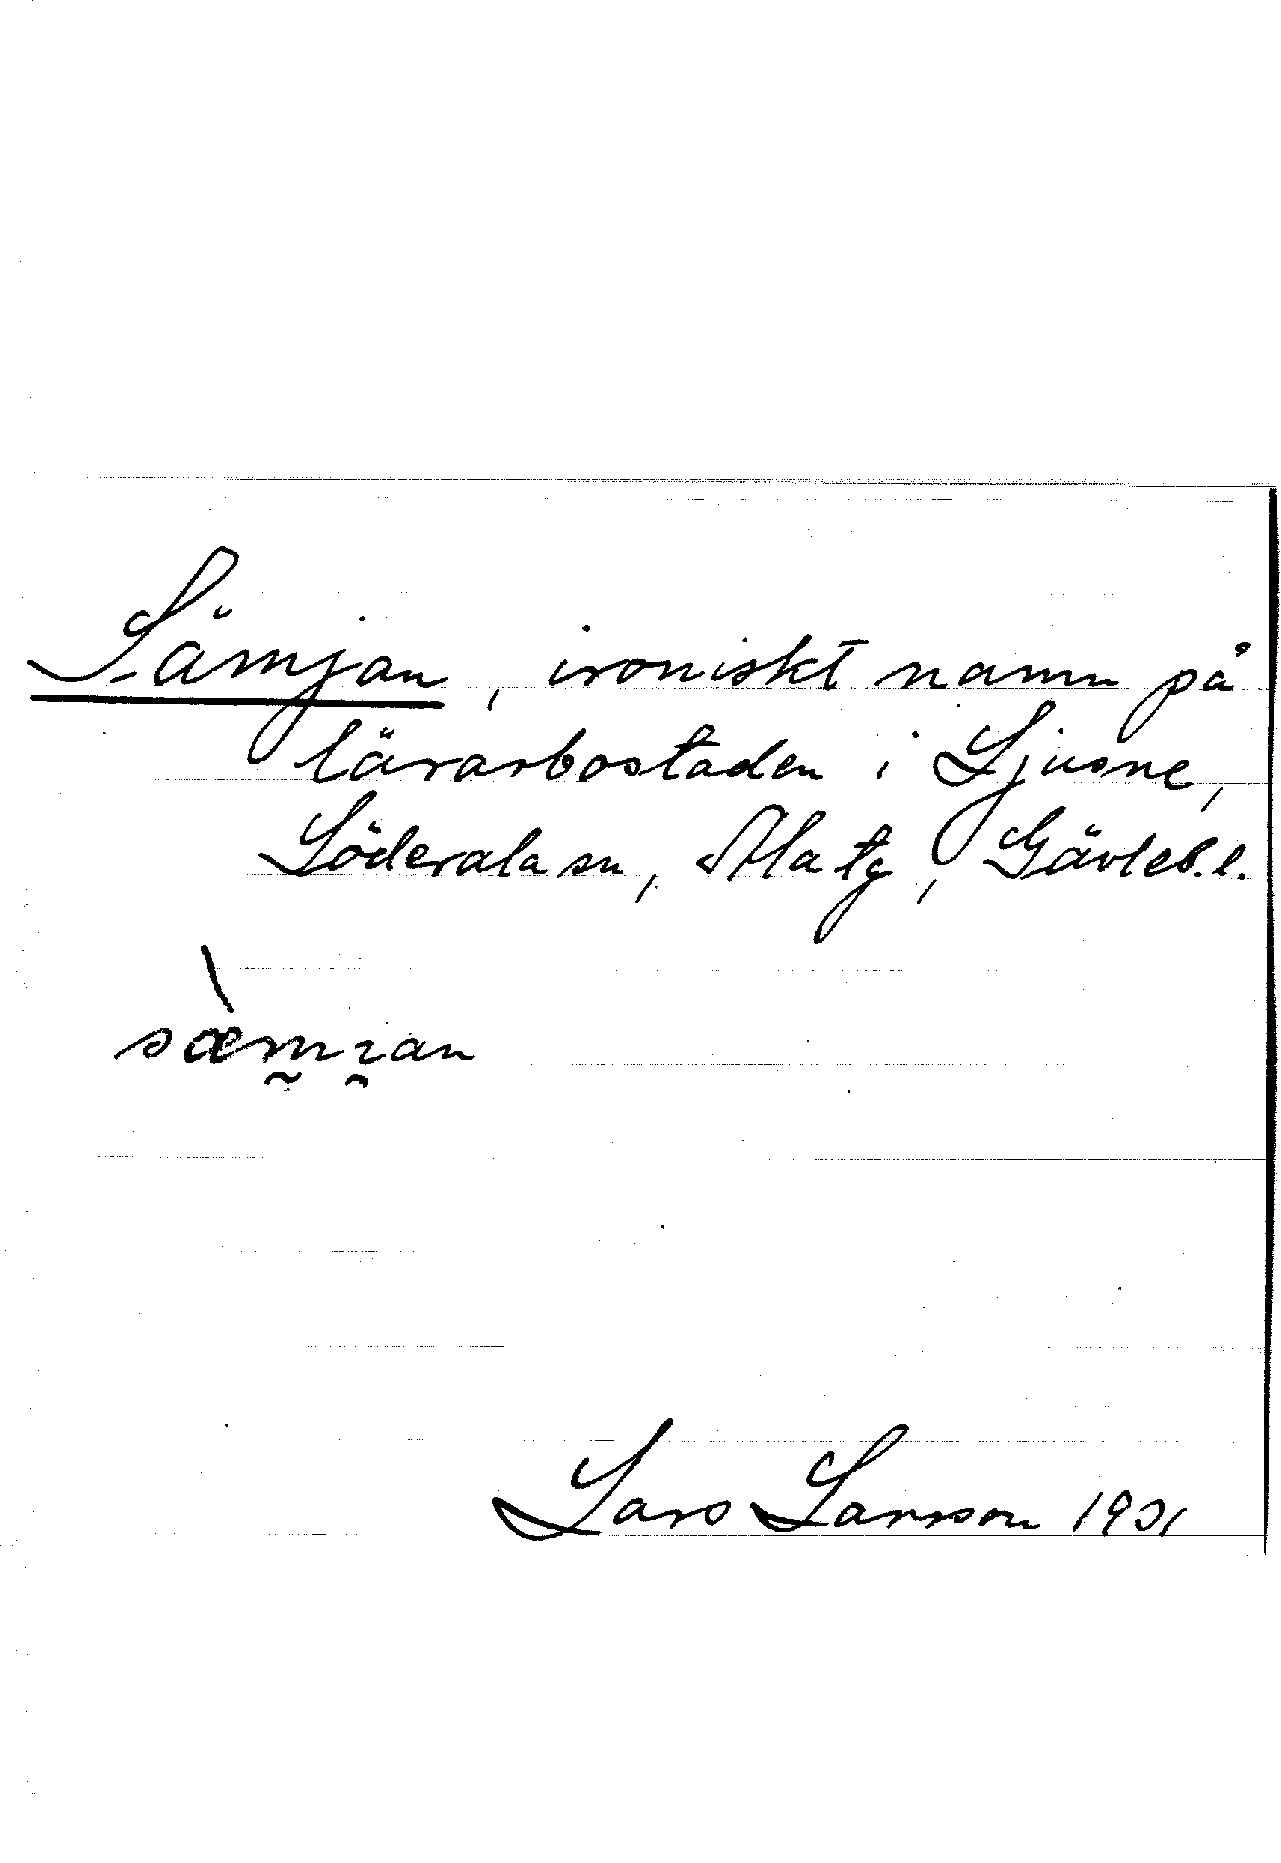 Sämjan, ironiskt namn på
lärarbostaden i Ljusne,
Söderala sn, Ala tg, Gävleb.l.
sæmɪan
Lars Larsson 1931